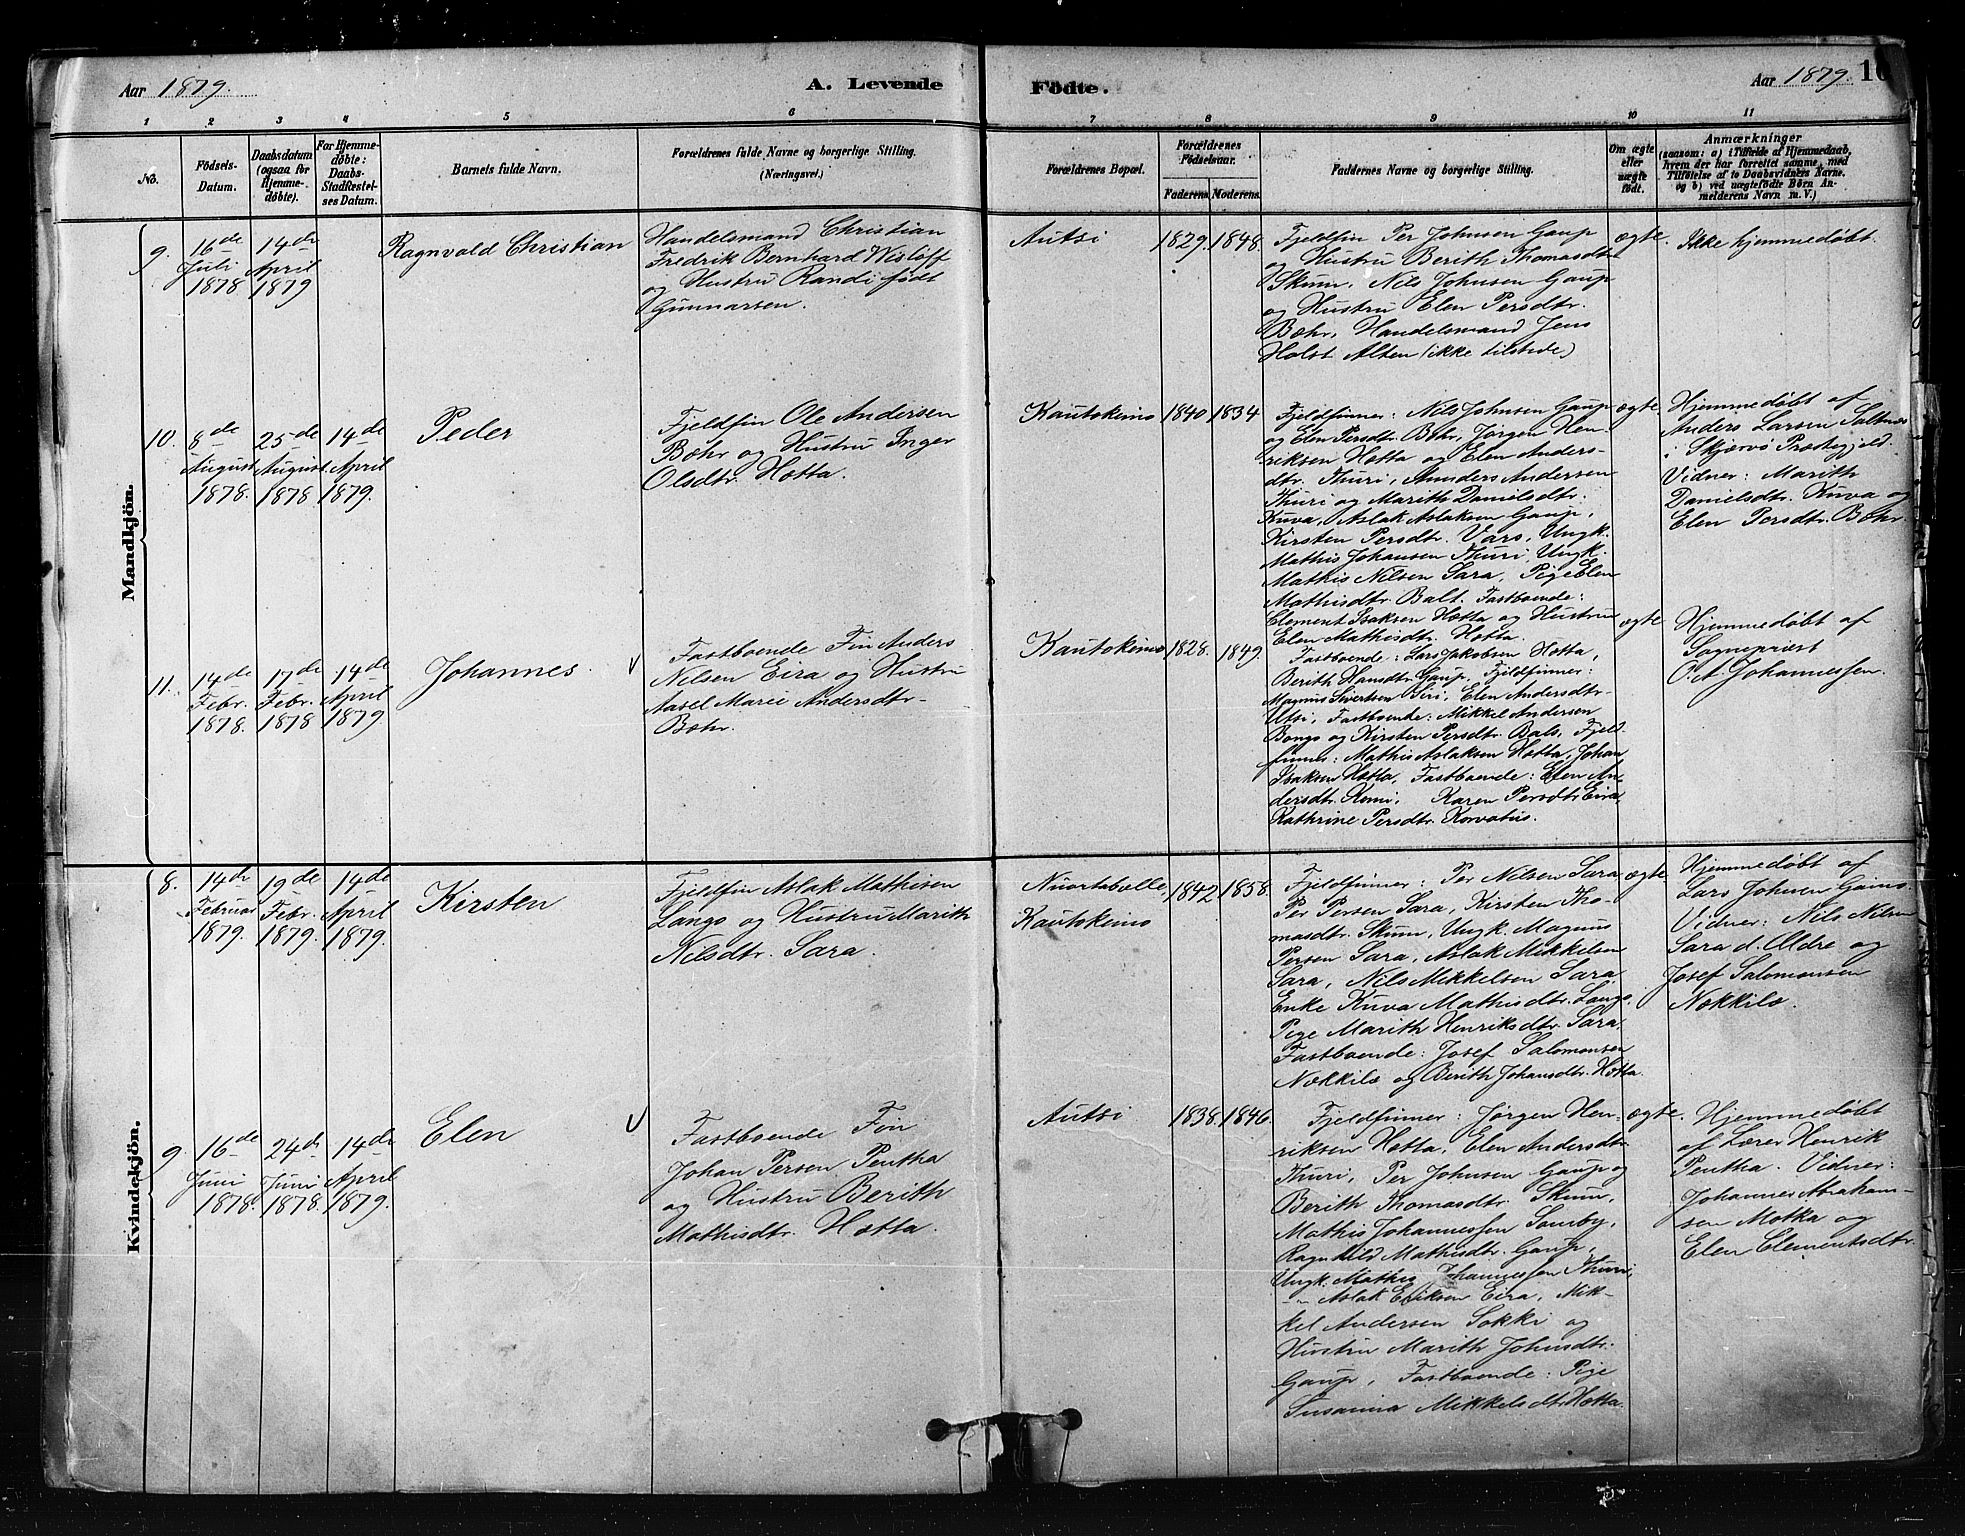 Aar 1879.
A. Levende
Födte.
Aar 1879.
10
1
2
3
4
5
6
7
8
9
10
11
No.
Födsels-
Datum.
Daabsdatum
(ogsaa for
Hjemme-
döbte).
For Hjemme-
döbte:
Daabs-
Stadfæstel-
ses Datum.
Barnets fulde Navn.
Forældrenes fulde Navne og borgerlige Stilling.
(Næringsvei.)
Forældrenes Bopæl.
Forældrenes
Födselsaar.
Faderens.
Moderens.
Faddernes Navne og borgerlige Stilling.
Om ægte
eller
uægte
födt.
Anmærkninger
(saasom: a) i Tilfælde af Hjemmedaab,
hvem der har forrettet samme, med
Tilföielse af to Daabsvidners Navne,
og b) ved uægtefödte Börn An-
melderens Navn m. V.)
Mandkjön.
9.
16de
Juli
1878.
14de
April
1879
Ragnvald Christian
Handelsmand Christian
Fredrik Bernhard Wisløff
og Hustru Randi født
Gunnarsen.
Autsi
1829.
1848.
Fjeldfin Per Johnsen Gaup
og Hustru Berith Thomasdtr.
Skum, Nils Johnsen Gaup
og Hustru Elen Persdtr.
Bohr, Handelsmand Jens
Holst Alten (ikke tilstede)
ægte.
Ikke hjemmedøbt.
10.
8de
August
1878.
25de
August
1878
14de
April
1879.
Peder
Fjeldfin Ole Andersen
Bohr og Hustru Inger
Olsdtr. Hætta.
Kautokeino
1840
1834
Fjeldfinner: Nils Johnsen Gaup
og Elen Persdtr. Bohr, Jørgen Hen-
riksen Hætta og Elen Anders-
dtr. Thuri, Anders Andersen
Thuri og Marith Danielsdtr.
Kuva, Aslak Aslaksen Gaup,
Kirsten Persdtr. Vars, Ungk.
Mathis Johansen Thuri, Ungk.
Mathis Nilsen Sara, Pige Elen
Mathisdtr. Balt. Fastboende:
Clement Isaksen Hætta og Hustru
Elen Mathisdtr. Hætta.
ægte.
Hjemmedøbt af
Anders Larsen Saltnes
i Skjervö Præstegjeld.
Vidner: Marith
Danielsdtr. Kuva og
Elen Persdtr. Bohr.
11.
14de
Febr.
1878.
17de
Febr.
1878
14de
April
1879.
Johannes
Fastboende Fin Anders
Nilsen Eira og Hustru
Aasel Marie Andersdtr.
Bohr.
Kautokeino
1828.
1849.
Fastboende: Lars Jakobsen Hætta,
Berith Hansdtr. Gaup, Fjeldfinner:
Magnus Sivertsen Siri, Elen Andersdtr.
Utsi, Fastboende: Mikkel Andersen
Bongo og Kirsten Persdtr. Bals, Fjeld-
finner: Mathis Aslaksen Hætta, Johan
Isaksen Hætta, Fastboende: Elen An-
dersdtr. Kemi, Karen Persdtr. Eira,
Kathrine Persdtr. Korvatus.
ægte
Hjemmedøbt af
Sognepræst
O. A. Johannessen.
Kvindekjön.
8.
14de
Februar
1879.
19de
Febr.
1879.
14de
April
1879.
Kirsten
Fjeldfin Aslak Mathisen
Lango og Hustru Marith
Nilsdtr. Sara.
Nuortabelle,
Kautokeino
1842
1858.
Fjeldfinner: Per Nilsen Sara
Per Persen Sara, Kirsten Tho-
masdtr. Skum, Ungk. Magnus
Persen Sara, Aslak Mikkelsen
Sara, Nils Mikkelsen Sara,
Enke Kuva Mathisdtr. Lango,
Pige Marith Henriksdtr. Sara,
Fastboende: Josef Salomonsen
Nækkilæ og Berith Johansdtr. Hætta.
ægte.
Hjemmedøbt af
Lars Johnsen Gaino.
Vidner: Nils Nilsen
Sara d. Ældre og
Josef Salomonsen
Nækkilæ.
9.
16de
Juni
1878.
24de
Juni
1878.
14de
April
1879.
Elen
Fastboende Fin
Johan Persen Pentha
og Hustru Berith
Mathisdtr. Hætta.
Autsi
1838.
1846.
Fjeldfinner: Jørgen Hen-
riksen Hætta, Elen Andersdtr.
Thuri, Per Johnsen Gaup og
Berith Thomasdtr. Skum,
Mathis Johannessen Somby,
Ragnhild Mathisdtr. Gaup,
Ungk. Mathis Johannessen Thuri,
— Aslak Eriksen Eira, Mik-
kel Andersen Sokki og
Hustru Marith Johnsdtr.
Gaup, Fastboende: Pige
Susanna Mikkelsdtr. Hætta.
ægte.
Hjemmedøbt
af Lærer Henrik
Pentha. Vidner:
Johannes Abraham-
sen Motka og
Elen Clementsdtr.